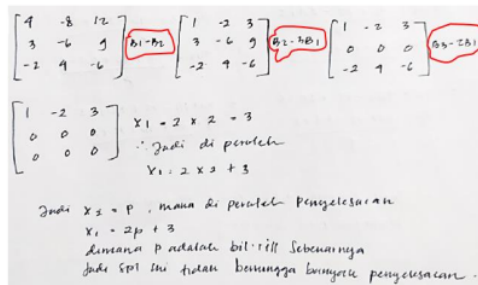 4 -8 12
3 -6 9
-2 4 -6
B1-B2
1 -2 3
3 -6 9
-2 4 -6
B2-3B1
1 -2 3
0 0 0
-2 4 -6
B3-2B1
1 -2 3
0 0 0
0 0 0
X1 - 2 x 2 = 3
∴ Jadi di peroleh
X1 = 2 x 2 + 3
Jadi x2 = p , maka di peroleh Penyelesaian
X1 = 2p + 3
dimana p adalah bil. riil Sebenarnya
Jadi SPL ini tidak berhingga banyak penyelesaian.